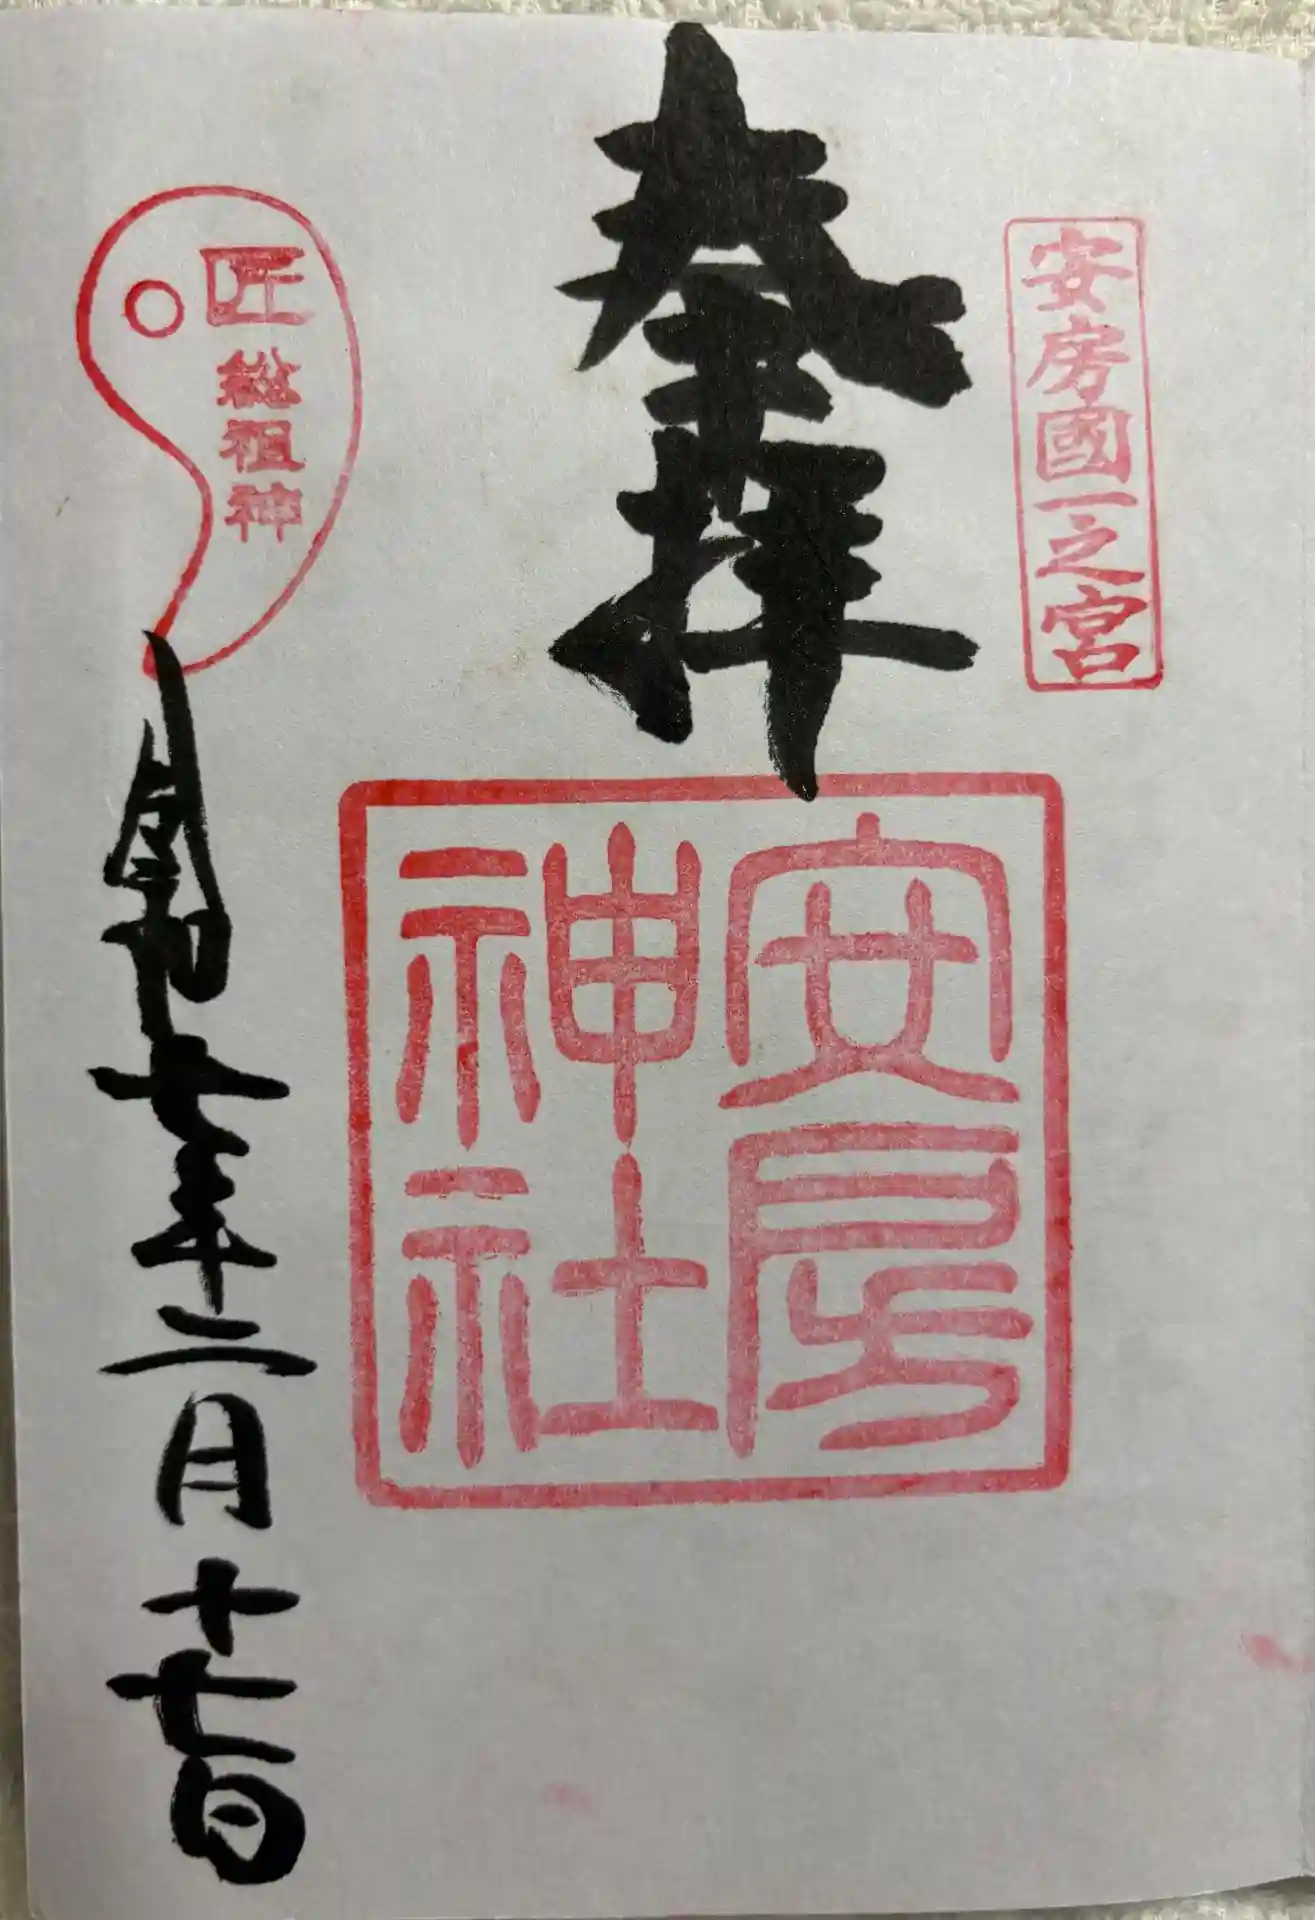 安房國一之宮
奉拝
安房
神社
匠
総祖神
令和七年二月十七日